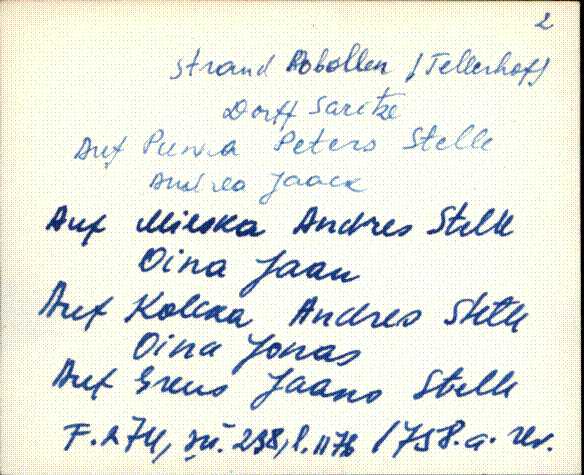 2
Strand Robollen /Tellerhoff/
Dorff Saritze
Auf Punna Peters Stelle
Andrea Jaack
Auf Mieska Andres Stelle
Oina Jaan
Auf Kolcka Andres Stelle
Oina Jonas
Auf Greus Jaans Stelle
F. 274, sü. 238, l. 117b /758. a. rev.